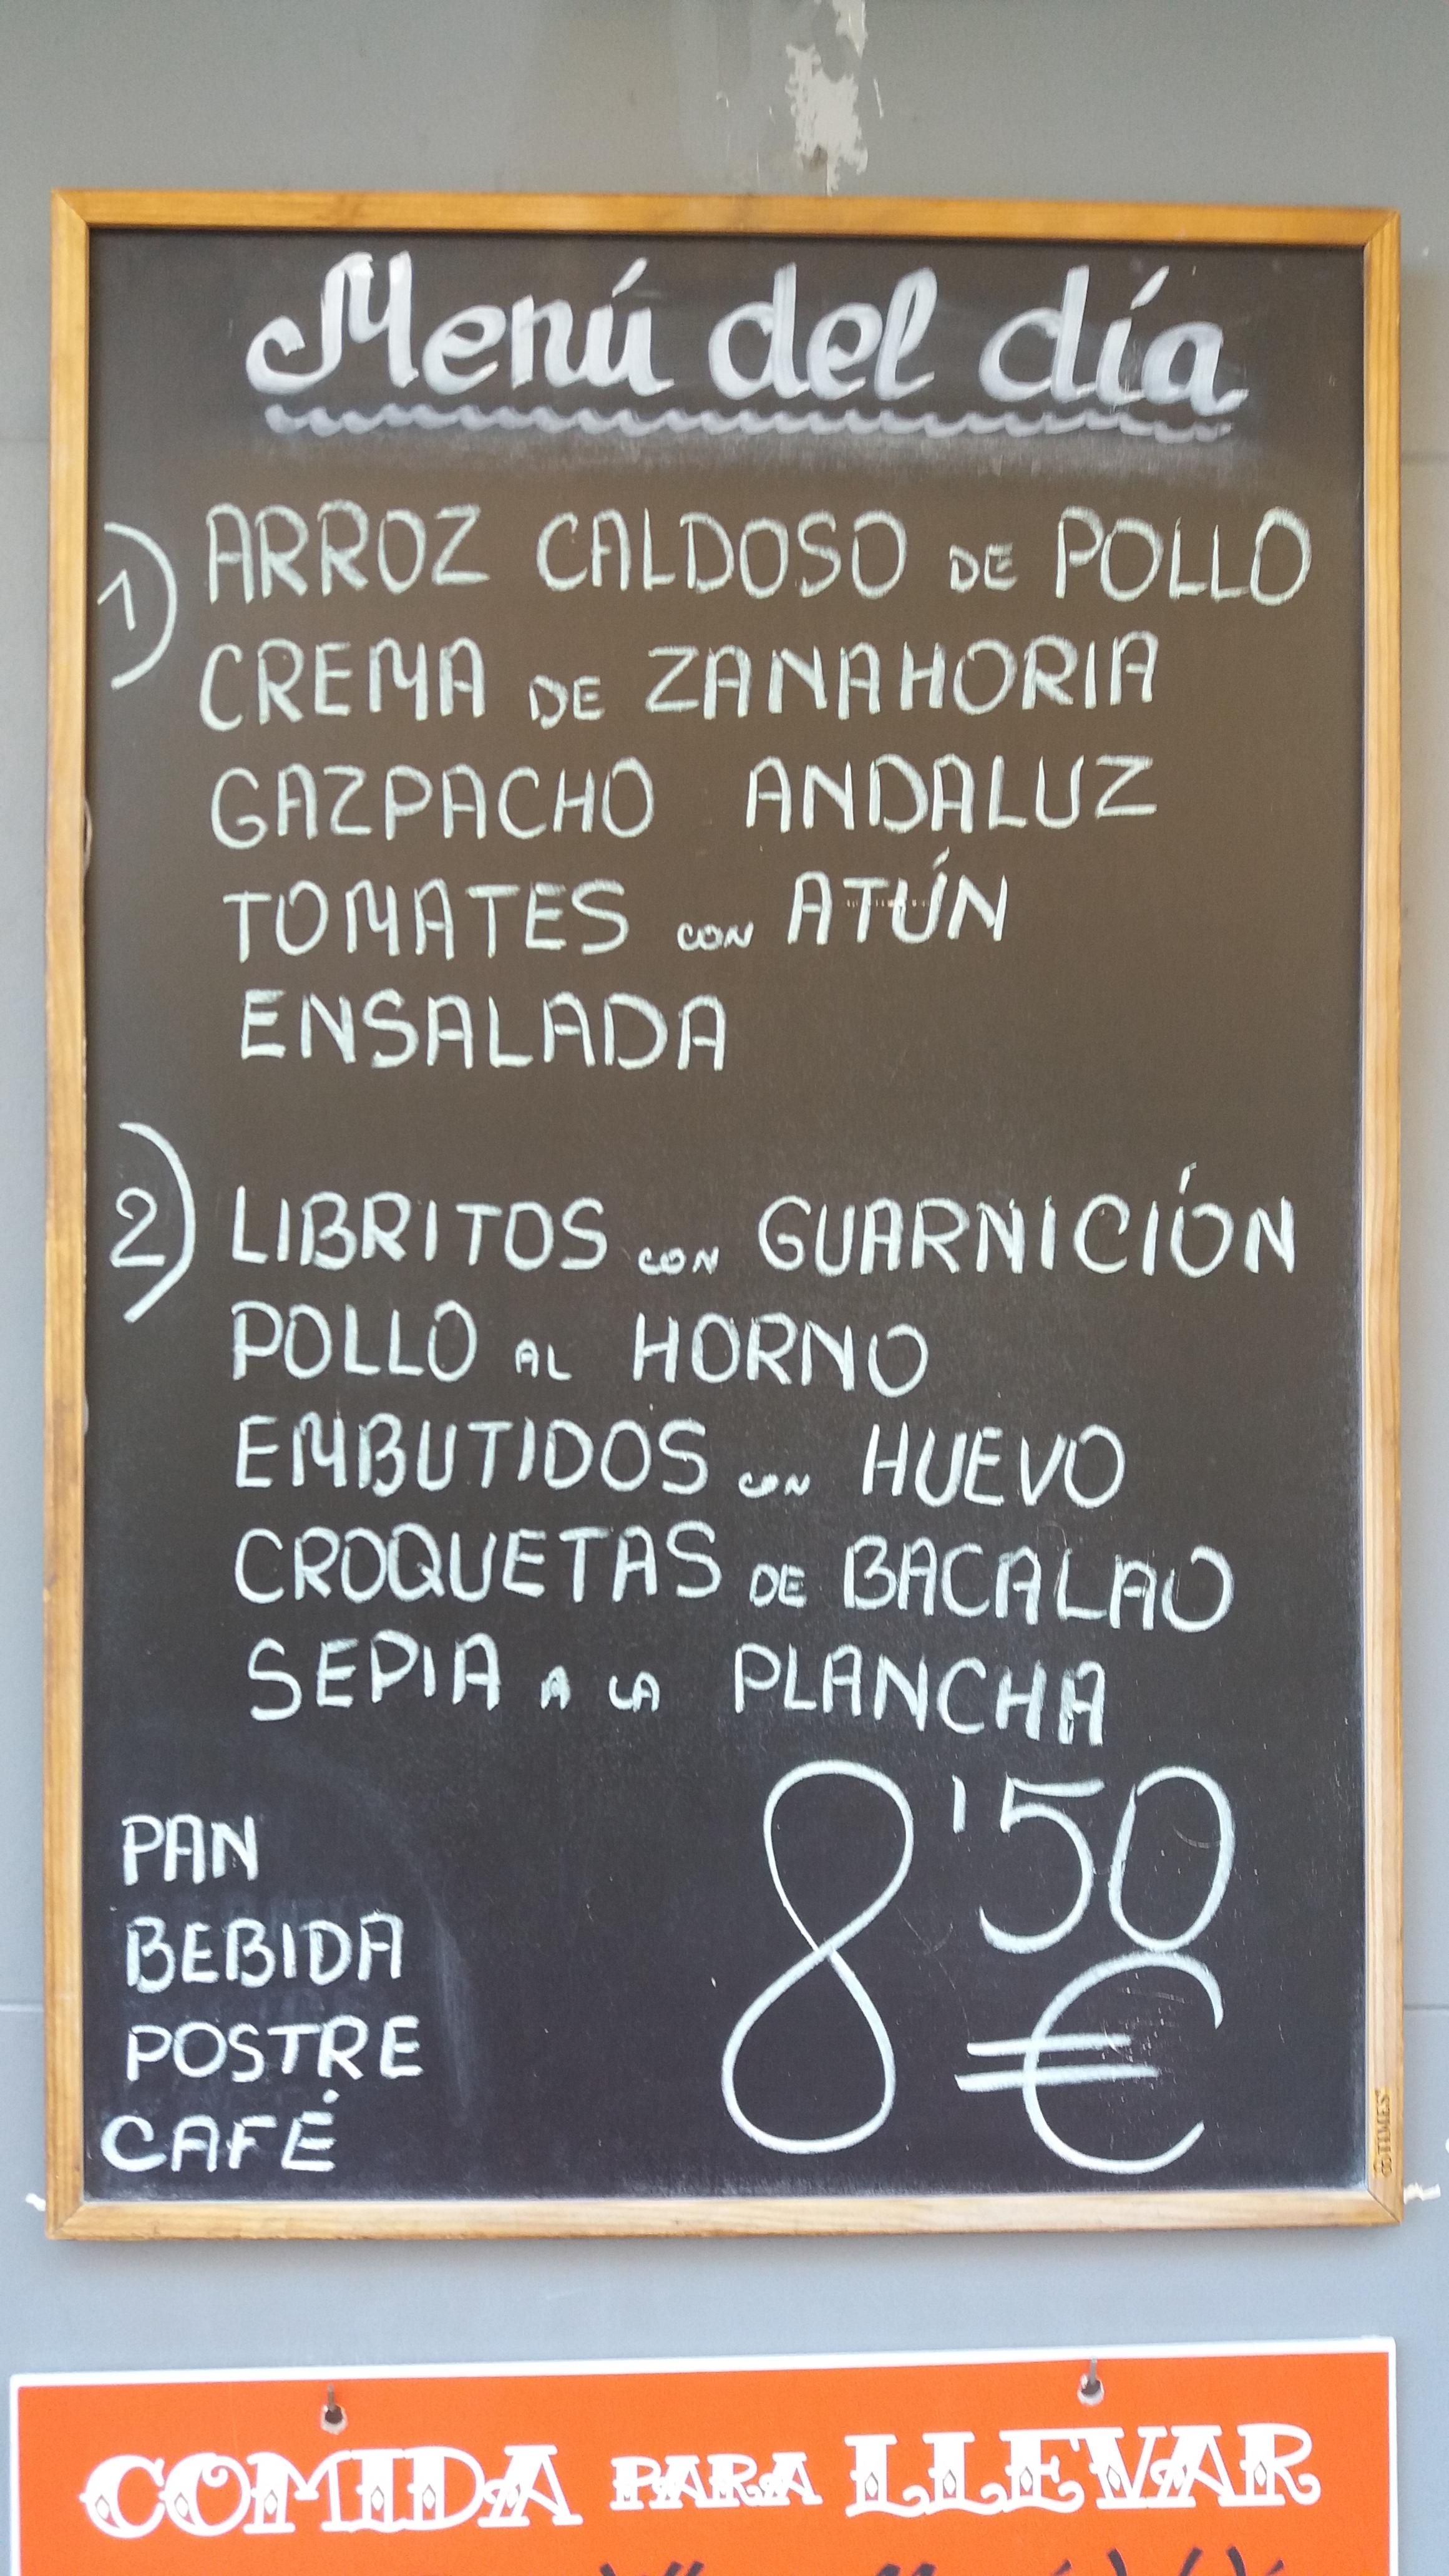 Menú del día
1) ARROZ CALDOSO DE POLLO
CREMA DE ZANAHORIA
GAZPACHO ANDALUZ
TOMATES CON ATÚN
ENSALADA
2) LIBRITOS CON GUARNICIÓN
POLLO AL HORNO
EMBUTIDOS CON HUEVO
CROQUETAS DE BACALAO
SEPIA A LA PLANCHA
PAN
BEBIDA
POSTRE
CAFÉ
8'50
€
TIMES
COMIDA PARA LLEVAR